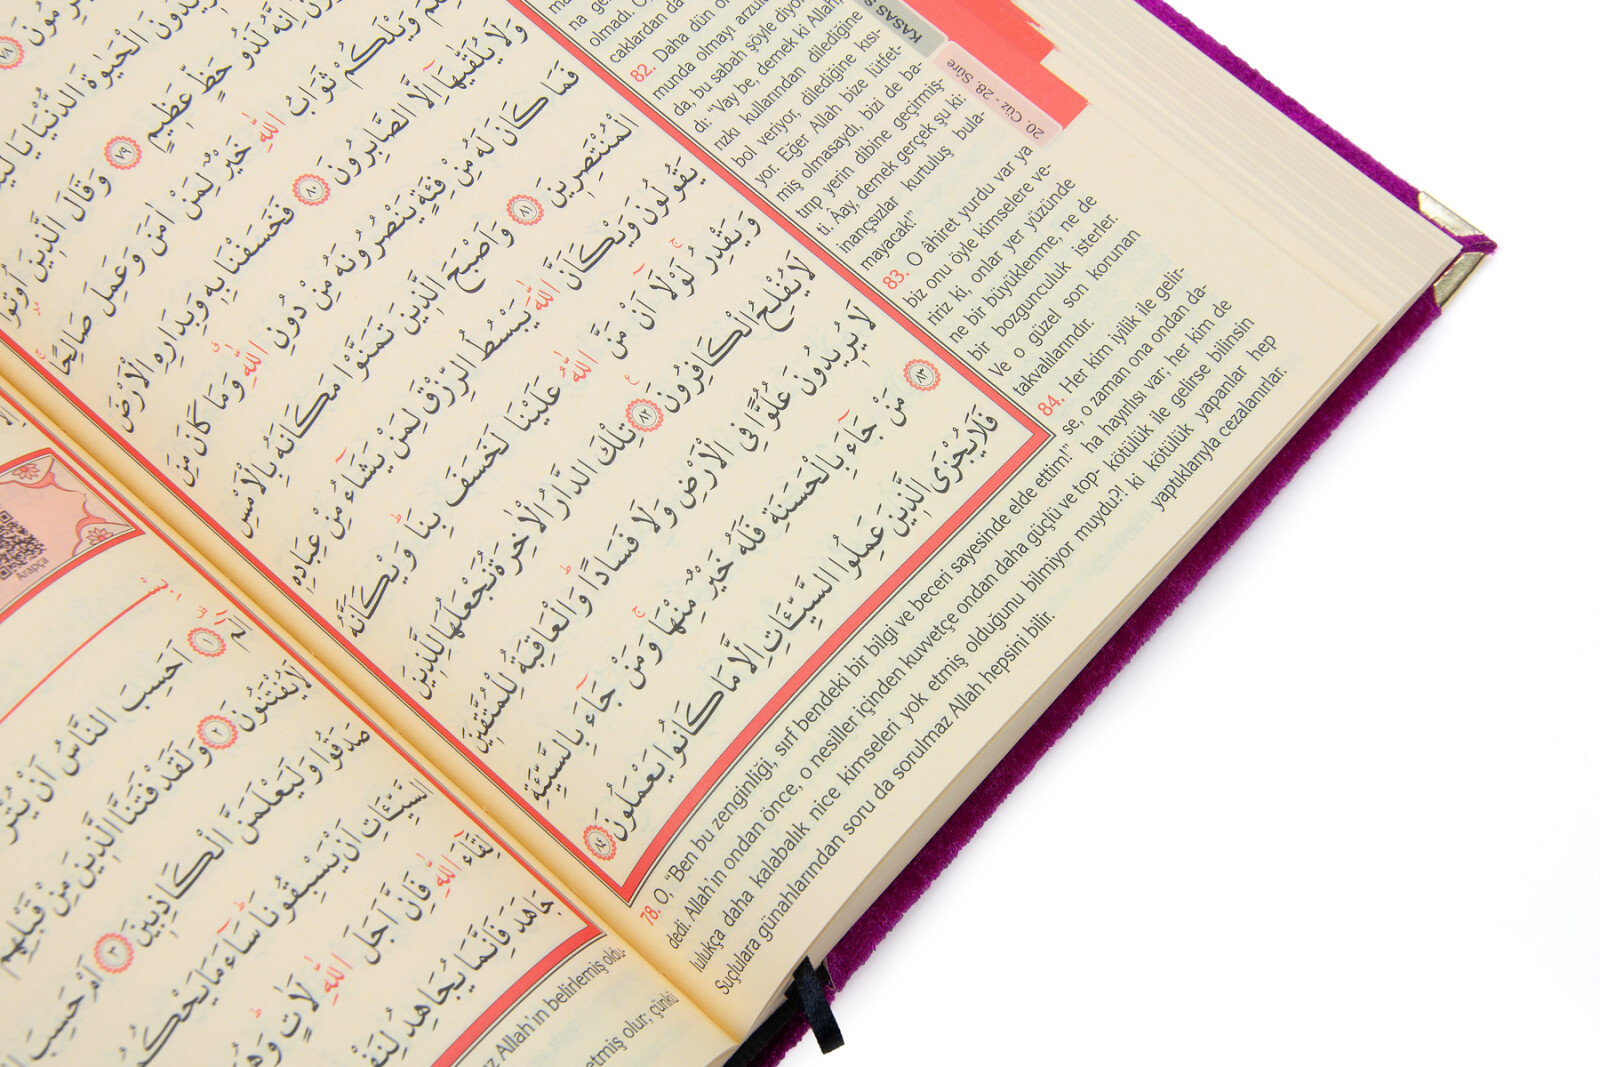 وَيْلَكُمْ ثَوَابُ اللّٰهِ خَيْرٌ لِمَنْ اٰمَنَ وَعَمِلَ صَالِحًا
وَلَا يُلَقّٰيهَٓا اِلَّا الصَّابِرُونَ ٨٠ فَخَسَفْنَا بِهِ وَبِدَارِهِ الْاَرْضَ
فَمَا كَانَ لَهُ مِنْ فِئَةٍ يَنْصُرُونَهُ مِنْ دُونِ اللّٰهِ وَمَا كَانَ مِنَ
الْمُنْتَصِرِينَ ٨١ وَاَصْبَحَ الَّذِينَ تَمَنَّوْا مَكَانَهُ بِالْاَمْسِ
يَقُولُونَ وَيْكَاَنَّ اللّٰهَ يَبْسُطُ الرِّزْقَ لِمَنْ يَشَٓاءُ مِنْ عِبَادِهِ
وَيَقْدِرُ لَوْلَٓا اَنْ مَنَّ اللّٰهُ عَلَيْنَا لَخَسَفَ بِنَا وَيْكَاَنَّهُ
لَا يُفْلِحُ الْكَافِرُونَ ٨٢ تِلْكَ الدَّارُ الْاٰخِرَةُ نَجْعَلُهَا لِلَّذِينَ
لَا يُرِيدُونَ عُلُوًّا فِي الْاَرْضِ وَلَا فَسَادًا وَالْعَاقِبَةُ لِلْمُتَّقِينَ
٨٣ مَنْ جَٓاءَ بِالْحَسَنَةِ فَلَهُ خَيْرٌ مِنْهَا وَمَنْ جَٓاءَ بِالسَّيِّئَةِ
فَلَا يُجْزَى الَّذِينَ عَمِلُوا السَّيِّـَٔاتِ اِلَّا مَا كَانُوا يَعْمَلُونَ ٨٤
20. Cüz - 28. Sûre
KASAS S
olmadı.
caklardan da
82. Daha dün
munda olmayı arzul
da, bu sabah şöyle diyor
dı: "Vay be, demek ki Allah
rızkı kullarından dilediğine
bol veriyor, dilediğine kısı-
yor. Eğer Allah bize lütfet-
miş olmasaydı, bizi de ba-
tırıp yerin dibine geçirmiş-
ti. Âay, demek gerçek şu ki:
inançsızlar kurtuluş bula-
mayacak!"
83. O âhiret yurdu var ya
biz onu öyle kimselere ve-
ririz ki, onlar yer yüzünde
ne bir büyüklenme, ne de
bir bozgunculuk isterler.
Ve o güzel son korunan
takvalılarındır.
84. Her kim iyilik ile gelir-
se, o zaman ona ondan da-
ha hayırlısı var; her kim de
kötülük ile gelirse bilinsin
ki kötülük yapanlar hep
yaptıklarıyla cezalanırlar.
78. O, "Ben bu zenginliği, sırf bendeki bir bilgi ve beceri sayesinde elde ettim!"
dedi. Allah'ın ondan önce, o nesiller içinden kuvvetçe ondan daha güçlü ve top-
lulukça daha kalabalık nice kimseleri yok etmiş olduğunu bilmiyor muydu?!
Suçlulara günahlarından soru da sorulmaz Allah hepsini bilir.
Arapça
الٓمٓ ١ اَحَسِبَ النَّاسُ اَنْ يُتْرَ
لَا يُفْتَنُونَ ٢ وَلَقَدْ فَتَنَّا الَّذِينَ مِنْ قَبْلِهِمْ
صَدَقُوا وَلَيَعْلَمَنَّ الْكَاذِبِينَ ٣ اَمْ حَسِبَ
السَّيِّـَٔاتِ اَنْ يَسْبِقُونَا سَٓاءَ مَا يَحْكُ
لِقَٓاءَ اللّٰهِ فَاِنَّ اَجَلَ اللّٰهِ لَاٰتٍ وَهُوَ
جَاهَدَ فَاِنَّمَا يُجَاهِدُ لِنَفْ
Allah'ın belirlemiş oldu-
etmiş olur; çünkü